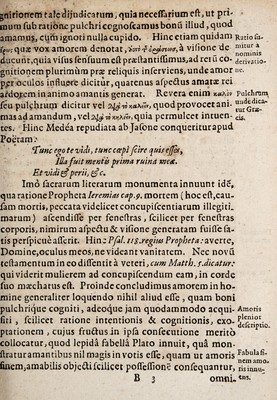 gnitionem tale dijudicatum, quia necessarium est, ut pri-
mùm sub ratione pulchri cognoscamus bonũ illud, quod
amamus, cũm ignoti nulla cupido. Hinc etiam quidam
quæ vox amorem denotat, à visione de
ducunt, quia visus sensuum est præstantissimus, ad rerũ co-
gnitionem plurimùm præ reliquis inserviens, unde amor
per oculos influere dicitur, quatenus aspectus amatæ rei
ardorem in animo amantis generat. Revera enim
seu pulchrum dicitur vel quod provocet ani-
mas ad amandum, vel quia permulcet intuen-
tes. Hinc Medéa repudiata ab Jasone conqueritur apud
Poëtam:
Tunc ego te vidi, tunc cæpi scire quis esses.
Illa fuit mentis prima ruina meæ.
Et vidi & perii, &c.
Imò sacrarum literarum monumenta innuunt idẽ,
qua ratione Propheta Jeremias cap. 9. mortem (hoc est, cau-
sam mortis, peccata videlicet concupiscentiarum illegiti-
marum) ascendisse per fenestras, scilicet per fenestras
corporis, nimirum aspectu & visione generatam fuisse sa-
tis perspicuè asserit. Hinc: Psal. 118. regius Propheta: averte,
Domine, oculos meos, ne videant vanitatem. Nec novũ
testamentum in eo dissentit à veteri, cum Matth. 5. dicatur:
qui viderit mulierem ad concupiscendum eam, in corde
suo mœchatus est. Proinde concludimus amorem in ho-
mine generaliter loquendo nihil aliud esse, quam boni
pulchrique cogniti, adeoque jam quodammodo acqui-
siti, scilicet ratione intentionis & cognitionis, exo-
ptationem, cujus fructus in ipsa consecutione meritò
collocatur, quod lepidâ fabellâ Plato innuit, quâ mon-
stratur amantibus nil magis in votis esse, quam ut amoris
sinem, amabilis objecti scilicet possessionẽ consequantur,
B 3 omni-
Ratio sa-
mitur a
nominis
derivatio-
ne.
Pulchrum
unde dica-
tur Græ-
cis.
Amoris
plenior
descriptio.
Fabula fi-
nem amo-
ris innu-
ens.